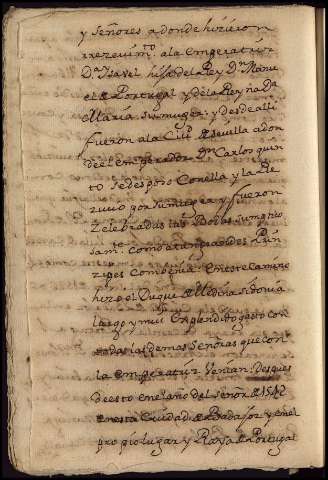 y señores a donde hizieron
rrezevim.to a la emperatriz
D.a Ysavel hija del Rey D.n Manu
el de Portugal y de la Reyna D.a
Maria su muger; y desde alli
fueron a la Ciu.d de Sevilla adon
de el emperador D.n Carlos quin
to se desposo con ella y la Re
zivio por su muger y fueron
zelebradas las Bodas sumptuo
sam.te como a tan grandes Prin
zipes combenia. En este camino
hizo el Duque de Medina Sidonia
largo y muy esplendido gasto con
todas las demas señoras que con
la emperatriz Venian; Despues
de esto en el año del señor de 1542
en esta Ciudad de Badajoz y en el
propio lugar y Raya de Portugal